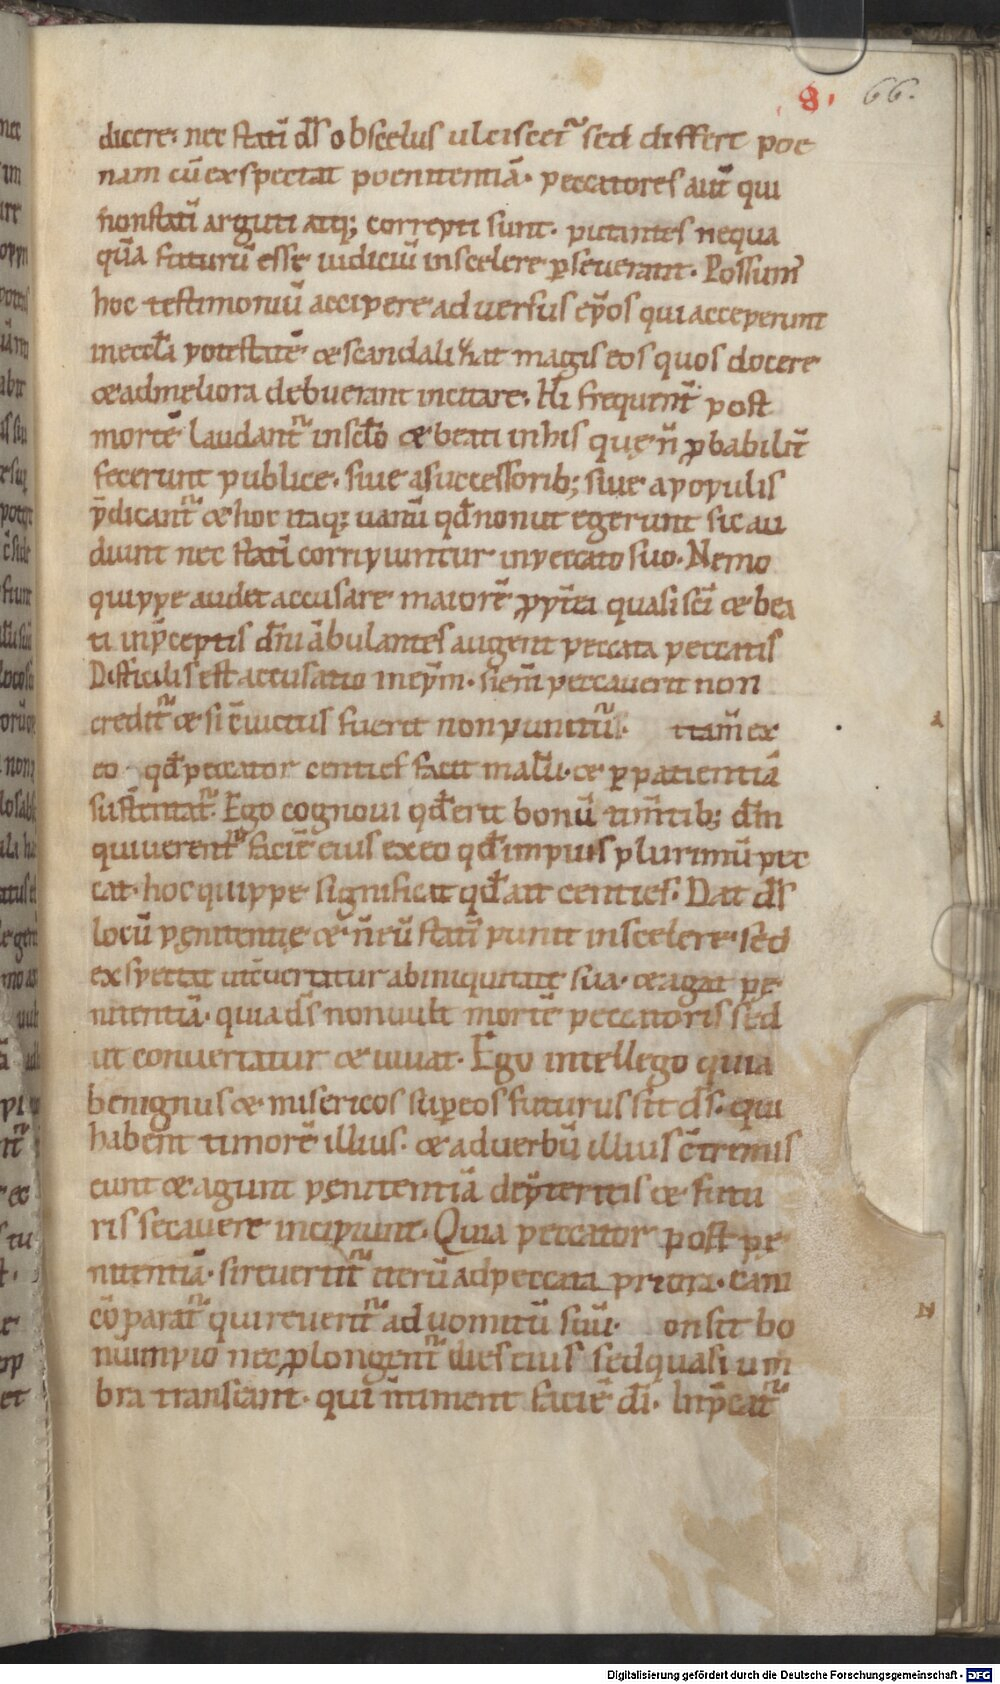 8. 66.
dicere. nec statī d̄s ob scelus ulciscet᷑ sed differt poe
nam cū exspectat poenitentiā. peccatores aut̄ qui
non statī arguti atq; correpti sunt. putantes nequa
quā futurū esse iudiciū in scelere p̱seuerant. Possum᷒
hoc testimoniū accipere aduersus ep̄os qui acceperunt
in eccl̄a potestatē & scandalizat magis eos quos docere
& ad meliora debuerant incitare. Hi frequent̄ post
mortē laudant᷑ in sc̄lo & beati in his quę n̄ ꝓbabilit̄
fecerunt publice. siue a successorib; siue a populis
p̄dicant᷑ & hoc itaq; uanū qd̄ non ut egerunt sic au
diunt nec statī corripiuntur in peccato suo. Nemo
quippe audet accusare maiorē ꝓpt̄ea quasi sc̄i & bea
ti in p̄ceptis dn̄i ābulantes augent peccata peccatis
Difficilis est accusatio in ep̄m. si eni᷒ peccauerit non
credit᷑ & si c̄uictus fuerit non punit᷑. ttam̄ ex
eo qd̄ peccator centies facit malū. & p̱ patientiā
sustentat᷑. Ego cognoui qd̄ erit bonū tim̄tib; dm̄
qui uerent᷑ faciē eius ex eo qd̄ impius plurimū pec
cat. hoc quippe significat qd̄ ait centies. Dat d̄s
locū pęnitentię & n̄ eū statī punit in scelere. sed
exspectat ut c̄uertatur ab iniquitate sua. & agat pę
nitentiā. quia d̄s non uult mortē peccatoris sed
ut conuertatur & uiuat. Ego intellego quia
benignus & misericos sup̱ eos futurus sit d̄s. qui
habent timorē illius. & ad uerbū illius c̄tremis
cunt & agunt pęnitentiā de p̄teritis & futu
ris se cauere incipiunt. Quia peccator post pę
nitentiā. si reuertit᷑ iterū ad peccata priora. cani
cōparat᷑ qui reuertit᷑ ad uomitū suū. on sit bo
nū impio nec ꝓlongent᷑ dies eius sed quasi um
bra transeant. qui n̄ timent faciē dī. Inp̄cat᷑
a
N
Digitalisierung gefördert durch die Deutsche Forschungsgemeinschaft - DFG